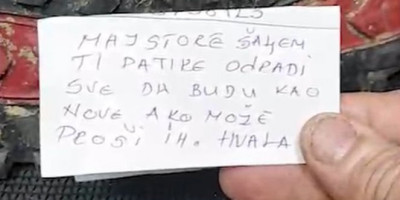 MAJSTORE ŠALJEM
TI PATIKE OdRADI
SVE DA BUDU KAO
NOVE AKO MOŽE
PROŠI IH. HVALA